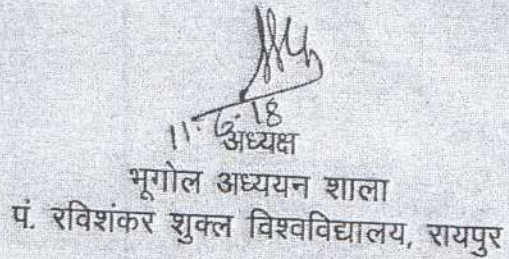 11.6.18
अध्यक्ष
भूगोल अध्ययन शाला
पं. रविशंकर शुक्ल विश्वविद्यालय, रायपुर